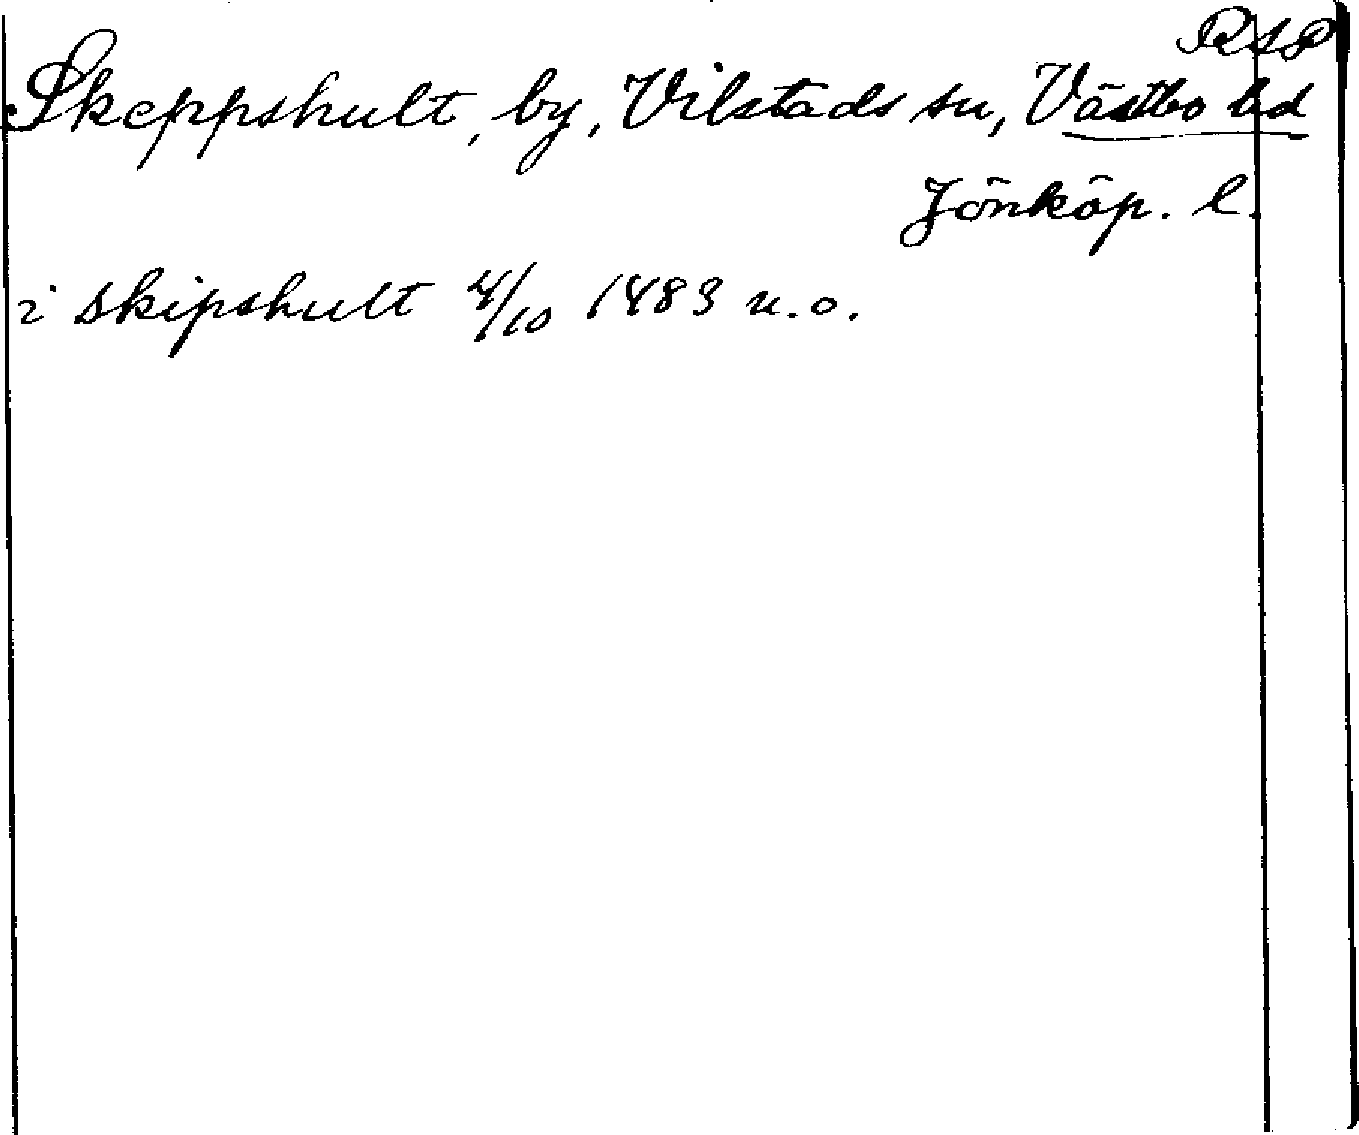 RAP
Skeppshult, by, Vilstads sn, Västbo hd
Jönköp. l.
i skipshult 4/10 1483 u.o.